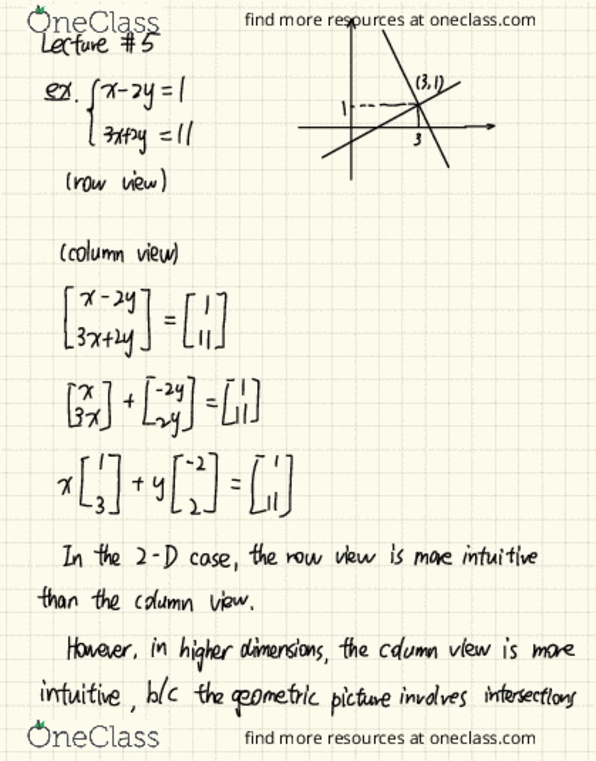 OneClass find more resources at oneclass.com
Lecture #5
ex. { x-2y = 1
3x+2y = 11
(row view)
(3,1)
1
3
(column view)
[x-2y
3x+2y] = [1
11]
[x
3x] + [-2y
2y] = [1
11]
x[1
3] + y[-2
2] = [1
11]
In the 2-D case, the row view is more intuitive
than the column view.
However, in higher dimensions, the column view is more
intuitive, b/c the geometric picture involves intersections
OneClass find more resources at oneclass.com